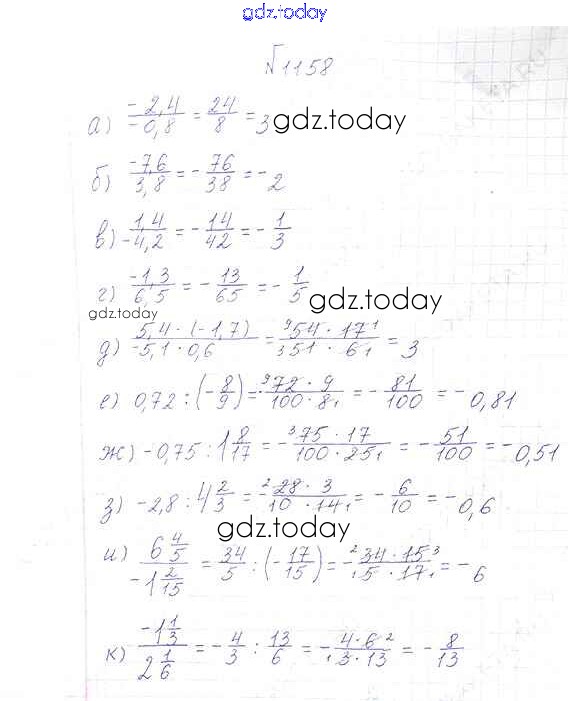 gdz.today
№1158
а) -2,4/-0,8 = 24/8 = 3 gdz.today
б) -7,6/3,8 = -76/38 = -2
в) 1,4/-4,2 = -14/42 = -1/3
г) -1,3/6,5 = -13/65 = -1/5 gdz.today
gdz.today
д) 5,4·(-1,7)/-5,1·0,6 = ⁹54·17¹/₃51·6₁ = 3
е) 0,72 : (-8/9) = -⁹72·9/100·8₁ = -81/100 = -0,81
ж) -0,75 : 1 8/17 = -³75·17/100·25₁ = -51/100 = -0,51
з) -2,8 : 4 2/3 = -²28·3/10·14₁ = -6/10 = -0,6
gdz.today
и) 6 4/5 / -1 2/15 = 34/5 : (-17/15) = -²34·15³/₁5·17₁ = -6
к) -1 1/3 / 2 1/6 = -4/3 : 13/6 = -4·6²/₁3·13 = -8/13